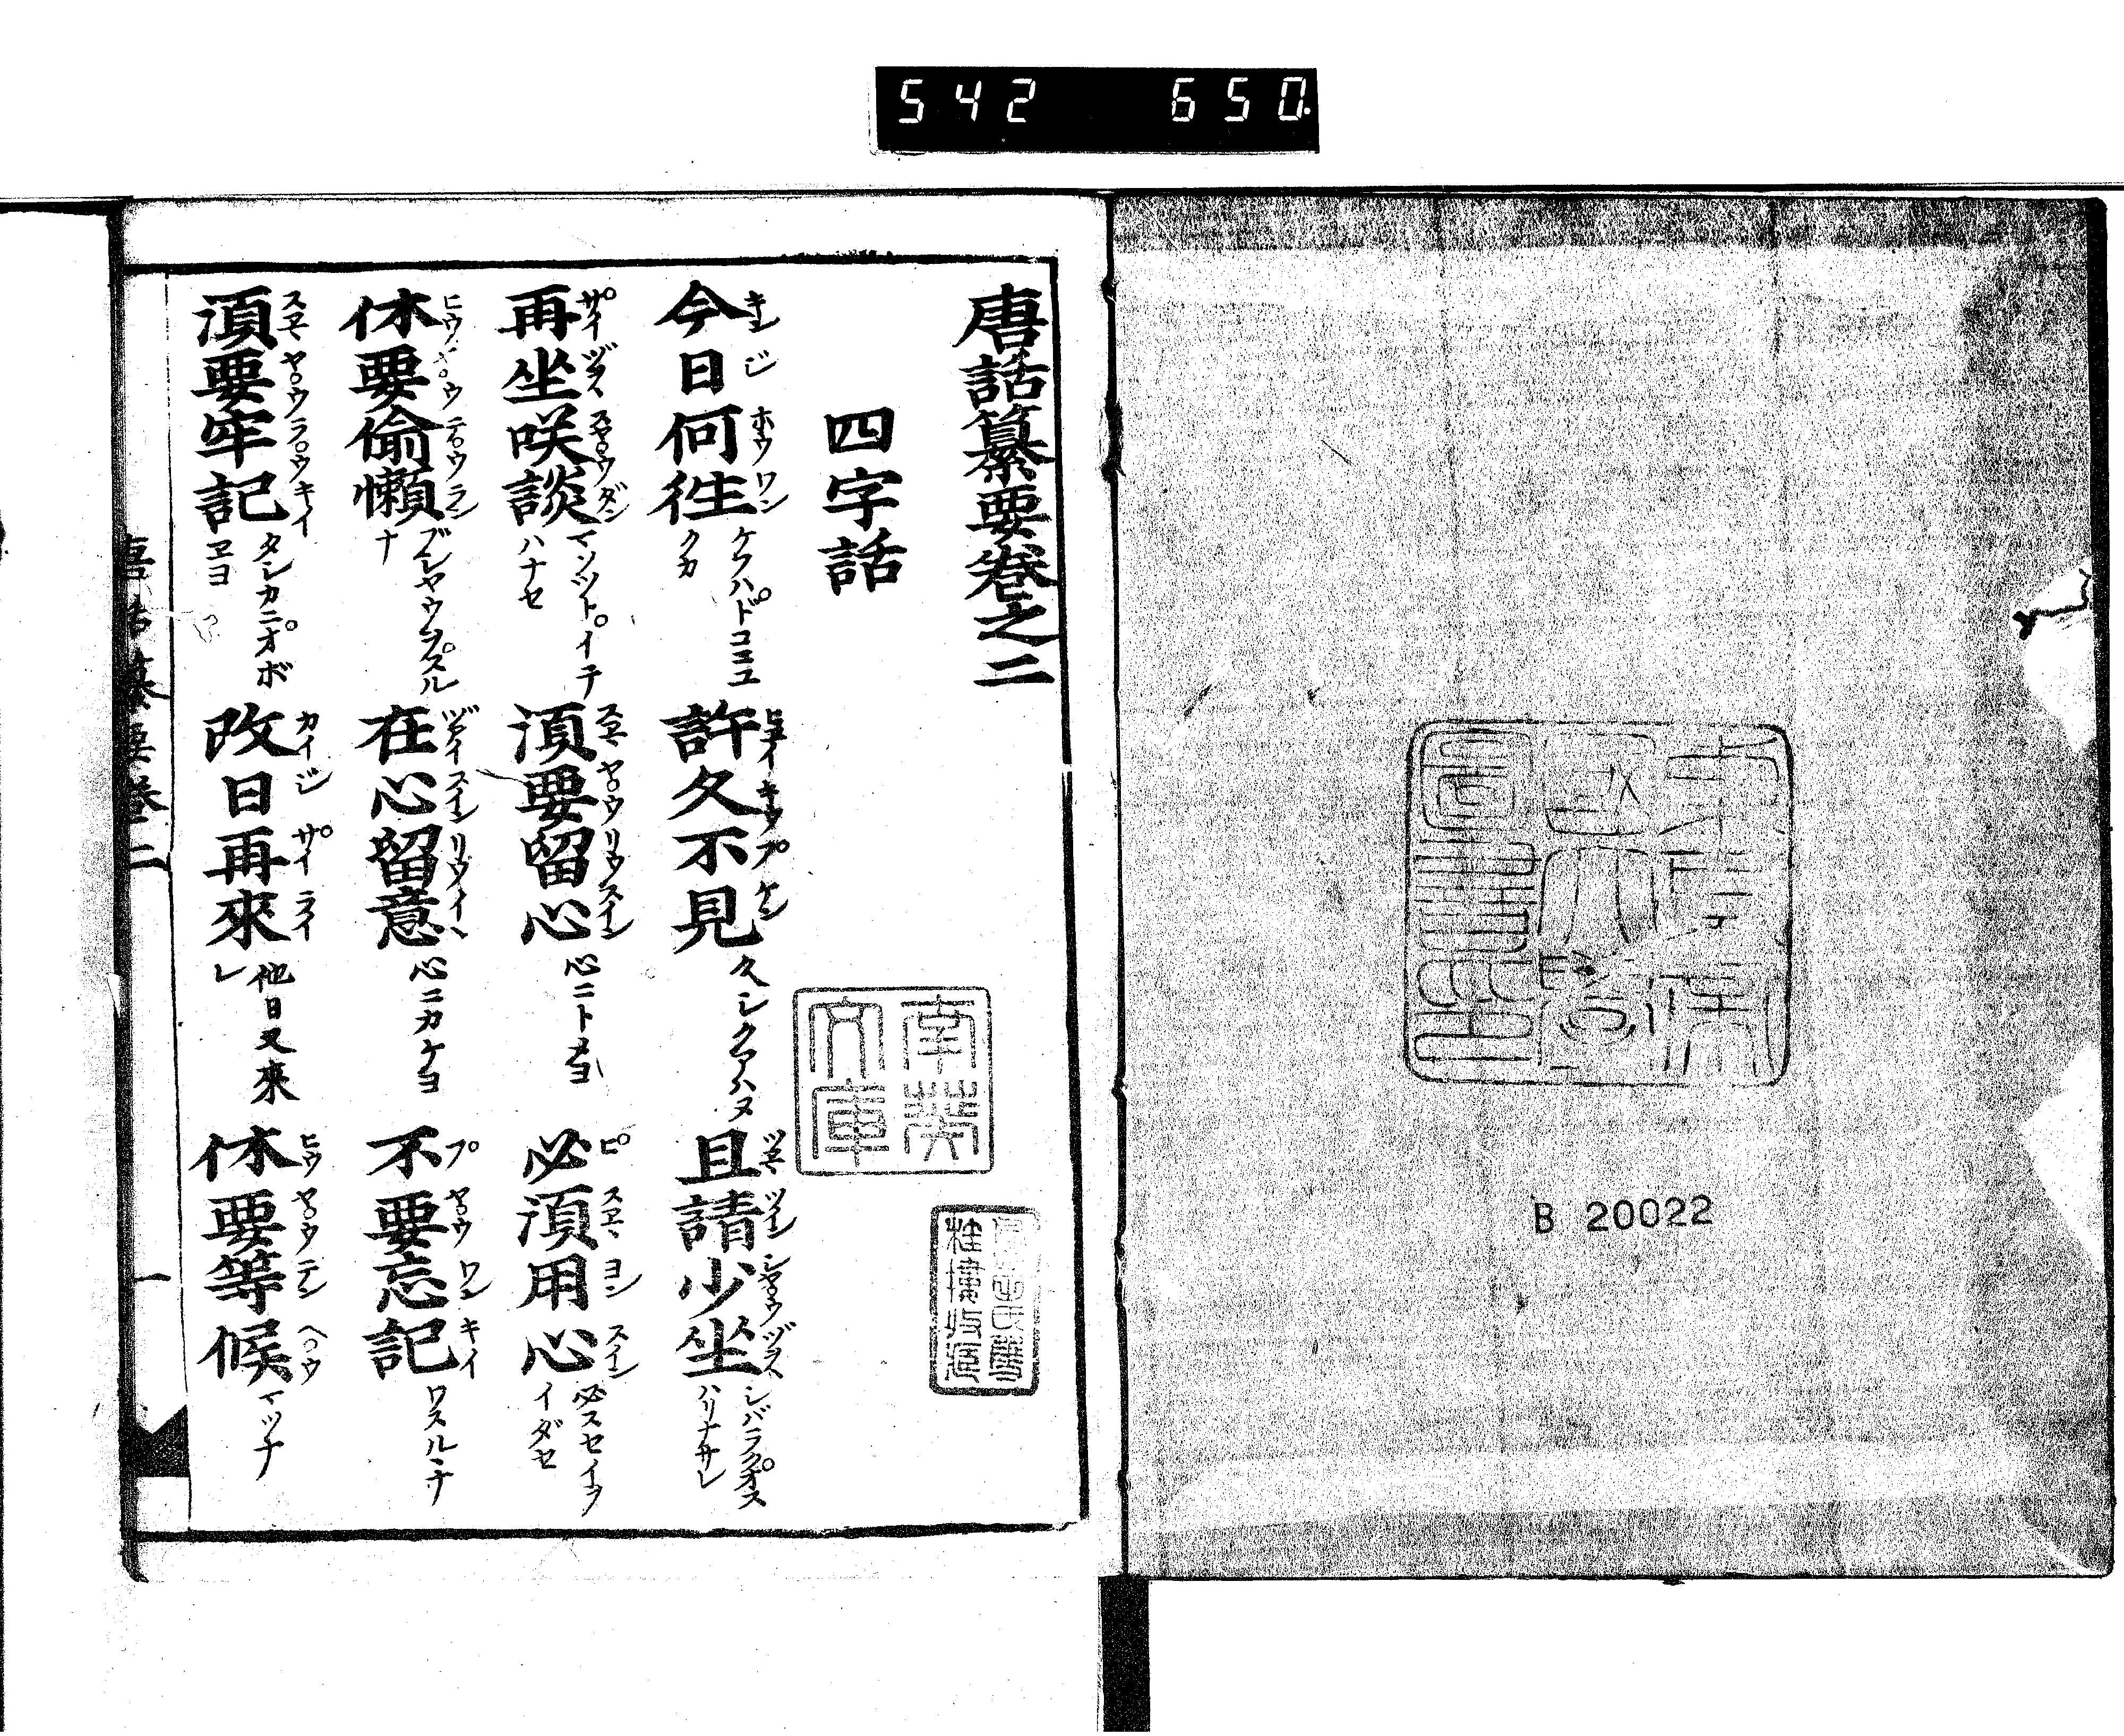 542 650.
B 20022
唐話纂要卷之二
四字話
今日何往 キンジホウワン ケフハドコエユクカ
許久不見 ヒイキウプケン 久シクアハヌ
且請少坐 ツヱヽツインシヤウヅヲヽ シバラクオスハリナサレ
再坐咲談 サイヅヲヽスヤウダン マツツトイテハナセ
須要留心 スヱヽヤウリウスイン 心ニトメヨ
必須用心 ピスヱヽヨンスイン 必スセイヲイダセ
休要偷懶 ヒウヤウテウラン ブシヤウヲスルナ
在心留意 ヅアイスインリウイヽ 心ニカケヨ
不要忘記 プヤウワンキイ ワスルヽナ
須要牢記 スヱヽヤウラウキイ タシカニオボヱヨ
改日再來 カイジサイライ 他日又來レ
休要等候 ヒウヤウテンヘウ マツナ
唐話纂要卷二 一
南葵文庫